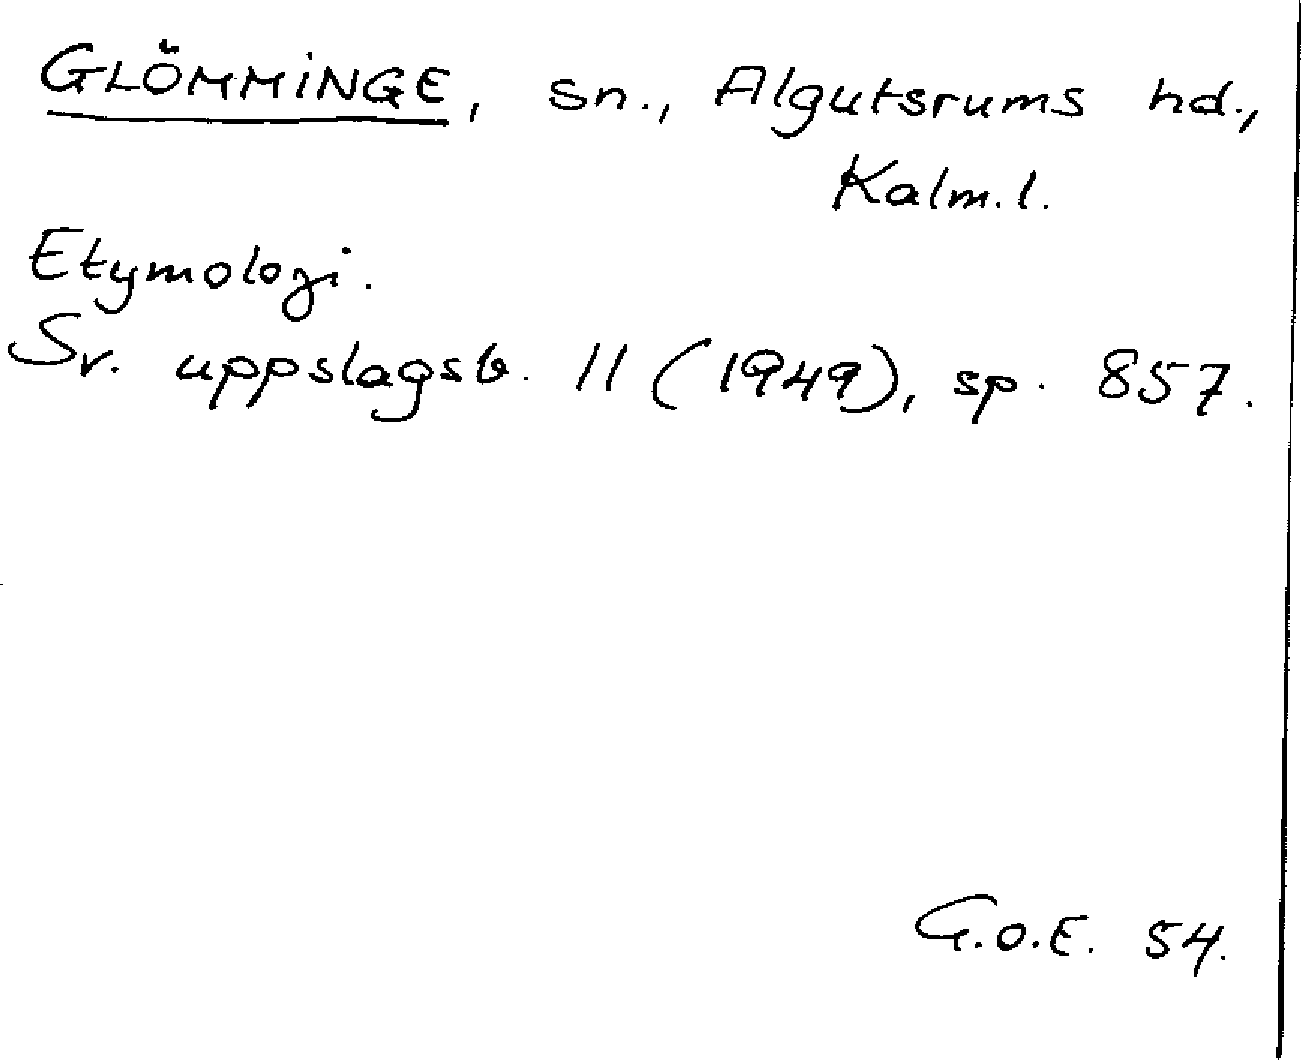 GLÖMMINGE, sn., Algutsrums hd.,
Kalm. l.
Etymologi.
Sv. uppslagsb. 11 (1949), sp. 857.
G.O.E. 54.